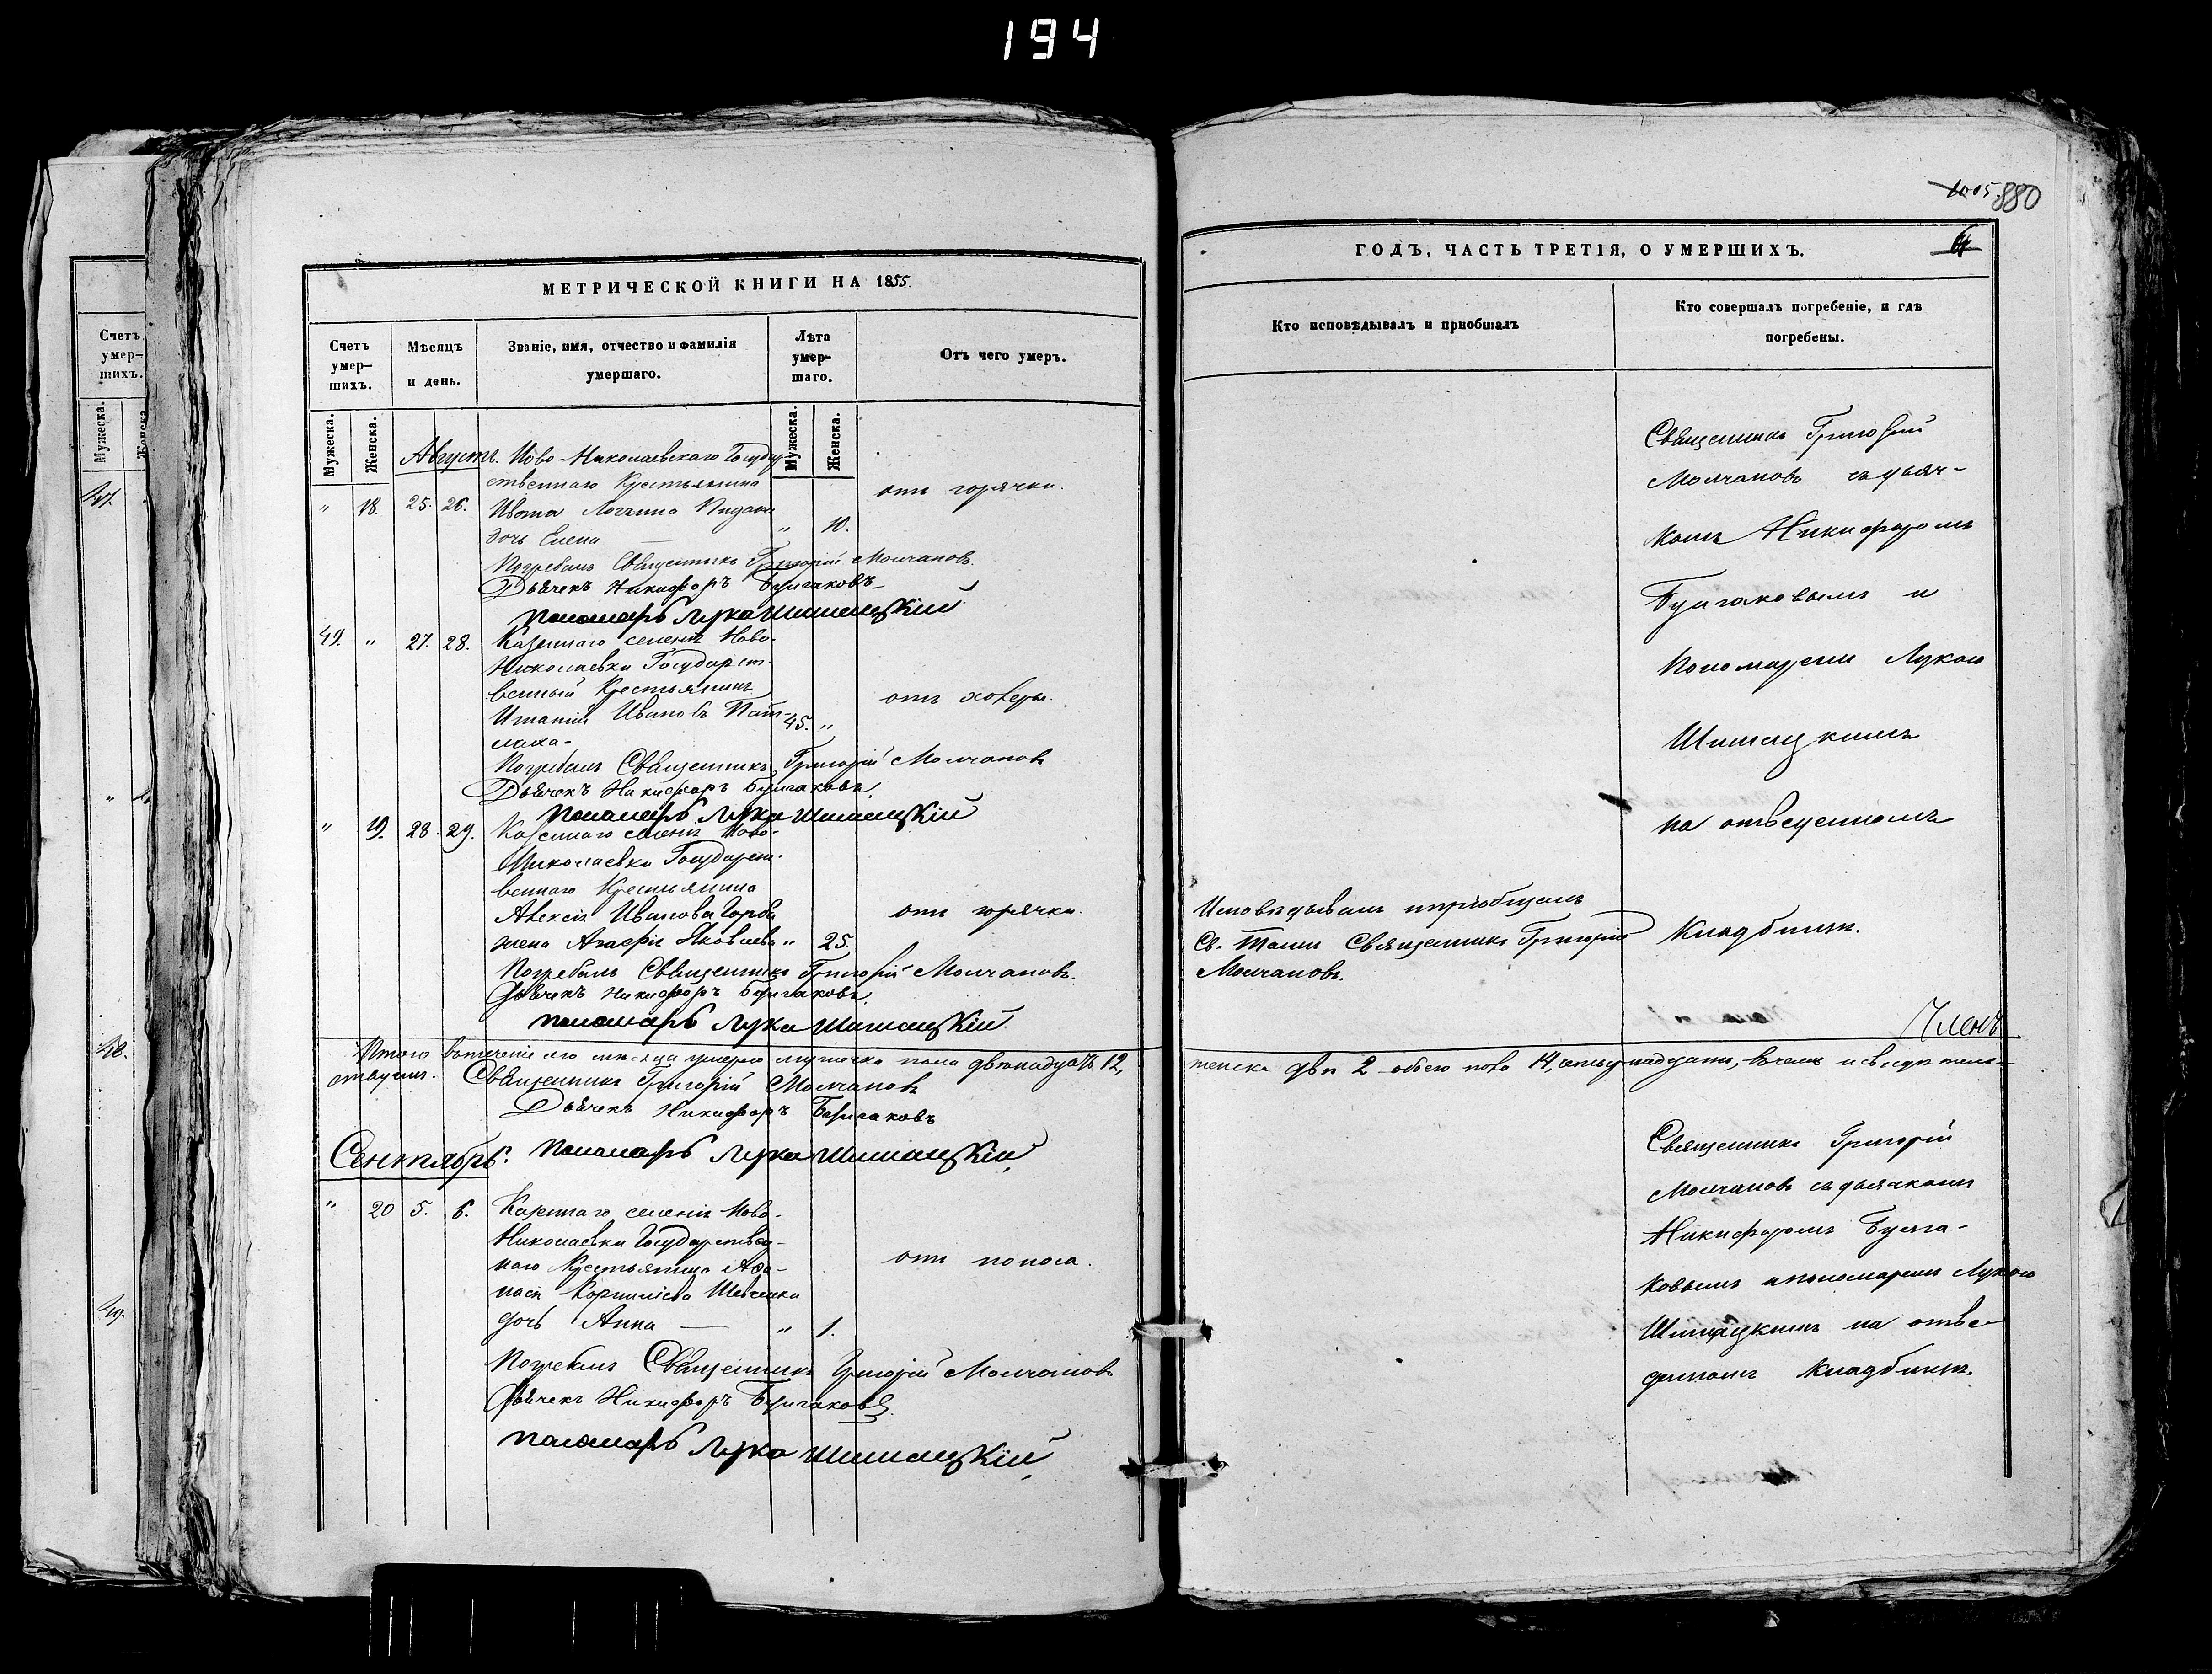 194
880
МЕТРИЧЕСКОЙ КНИГИ НА 1855.
Счетъ умер-шихъ.
Мѣсяцъ и день.
Званіе, имя, отчество и фамилія умершаго.
Лѣта умер-шаго.
Отъ чего умеръ.
Мужеска.
Женска.
Мужеска.
Женска.
Августъ. Ново-Николаевскаго Государ-
ственнаго Крестьянина
" 18. 25. 26. Ивана Логгина
дочь Елена " 10. отъ горячки.
Погребалъ Священникъ Григорій Молчановъ.
Дьячекъ Никифоръ Булгаковъ
Пономарь Лука Шишацкій
49. " 27. 28. Казеннаго селенія Ново-
Николаевки Государст-
венный Крестьянинъ
Игнатій Ивановъ 45. " отъ холеры.
Погребалъ Священникъ Григорій Молчановъ
Дьячекъ Никифоръ Булгаковъ
Пономарь Лука Шишацкій
" 19. 28. 29. Казеннаго селенія Ново-
Николаевки Государст-
веннаго Крестьянина
Алексія Иванова Горба отъ горячки.
жена Агафія Яковлева " 25.
Погребалъ Священникъ Григорій Молчановъ.
Дьячекъ Никифоръ Булгаковъ.
Пономарь Лука Шишацкій
Итого въ теченіе сего мѣсяца умерло мужеска пола двенадцать 12,
Священникъ Григорій Молчановъ
Дьячекъ Никифоръ Булгаковъ
Сентябрь. Пономарь Лука Шишацкій
" 20 5. 6. Казеннаго селенія Ново-
Николаевки Государствен-
наго Крестьянина Афа-
насія Корнилієва Шевченка
дочь Анна " 1. отъ поноса.
Погребалъ Священникъ Григорій Молчановъ
Дьячекъ Никифоръ Булгаковъ.
Пономарь Лука Шишацкій
ГОДЪ, ЧАСТЬ ТРЕТІЯ, О УМЕРШИХЪ.
Кто исповѣдывалъ и пріобщалъ
Кто совершалъ погребеніе, и гдѣ погребены.
Священникъ Григорій
Молчановъ съ дьяч-
комъ Никифоромъ
Булгаковымъ и
Пономаремъ Лукою
Шишацкимъ
на отведенномъ
Кладбищѣ.
Исповѣдывалъ и пріобщалъ
Св. Таинъ Священникъ Григорій
Молчановъ.
Членъ
женска двѣ 2 обоего пола 14, четырнадцать, въ чемъ и свидетель-
Священникъ Григорій
Молчановъ съ дьячкомъ
Никифоромъ Булга-
ковымъ и пономаремъ Лукою
Шишацкимъ на отве-
денномъ Кладбищѣ.
Счетъ умер-шихъ.
Мужеска.
47.
48.
49.